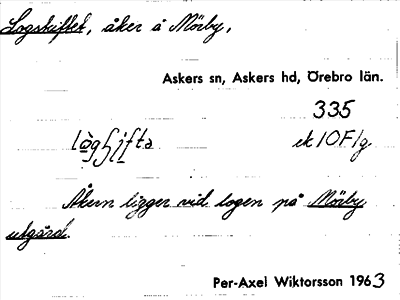 Logskiftet, åker å Mörby,
Askers sn, Askers hd, Örebro län.
335
ek 10F1g.
Åkern ligger vid logen på Mörby
utgård.
Per-Axel Wiktorsson 1963